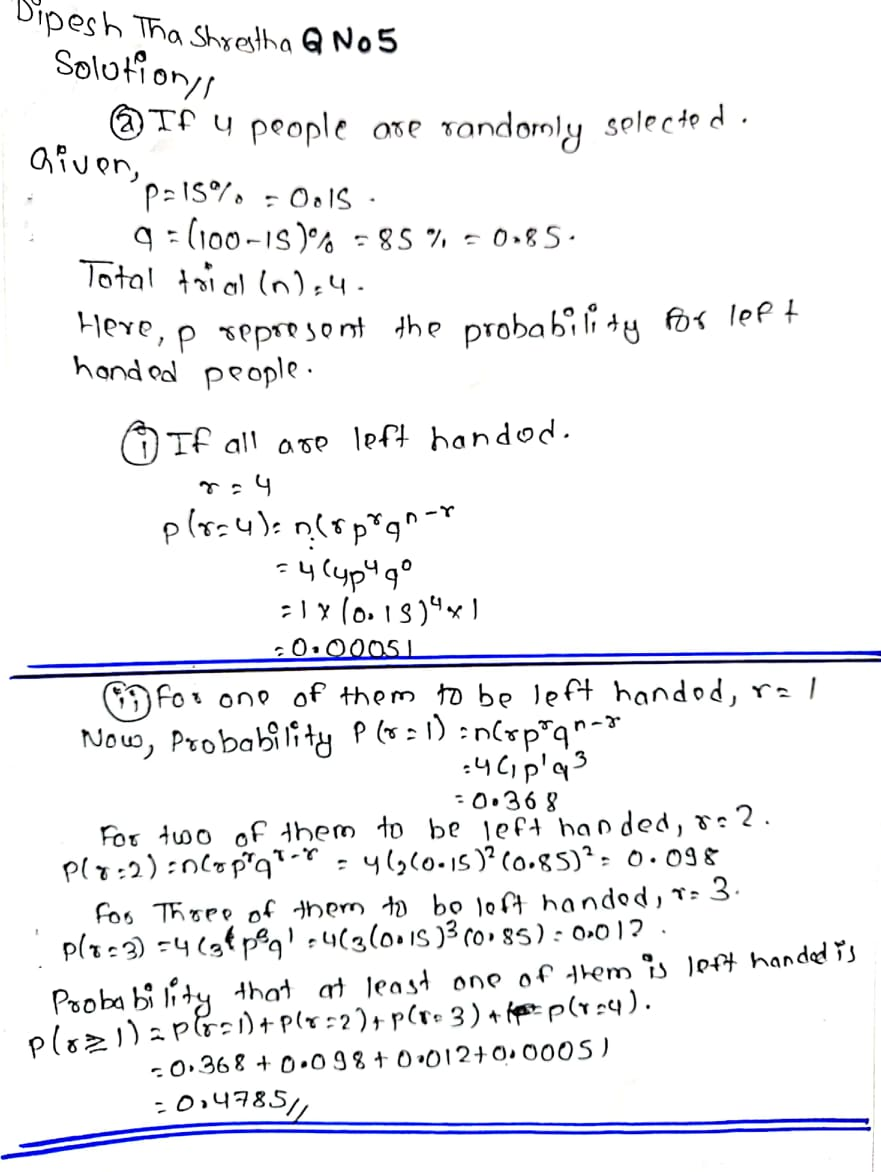 Dipesh Tha Shrestha Q No 5
Solution//
ⓐ If 4 people are randomly selected.
Given,
p = 15% = 0.15.
q = (100-15)% = 85% = 0.85.
Total trial (n) = 4.
Here, p represent the probability for left
handed people.
ⓘ If all are left handed.
r = 4
p(r=4) = nCr p^r q^n-r
= 4C4 p^4 q^0
= 1 x (0.15)^4 x 1
= 0.00051
ⓘⓘ For one of them to be left handed, r = 1
Now, Probability P(r=1) = nCr p^r q^n-r
= 4C1 p^1 q^3
= 0.368
For two of them to be left handed, r = 2.
P(r=2) = nCr p^r q^r-r = 4C2 (0.15)^2 (0.85)^2 = 0.098
For Three of them to be left handed, r = 3.
p(r=3) = 4C3 p^3 q^1 = 4C3 (0.15)^3 (0.85) = 0.012.
Probability that at least one of them is left handed is
p(r≥1) = p(r=1) + p(r=2) + p(r=3) + p(r=4).
= 0.368 + 0.098 + 0.012 + 0.00051
= 0.4785//